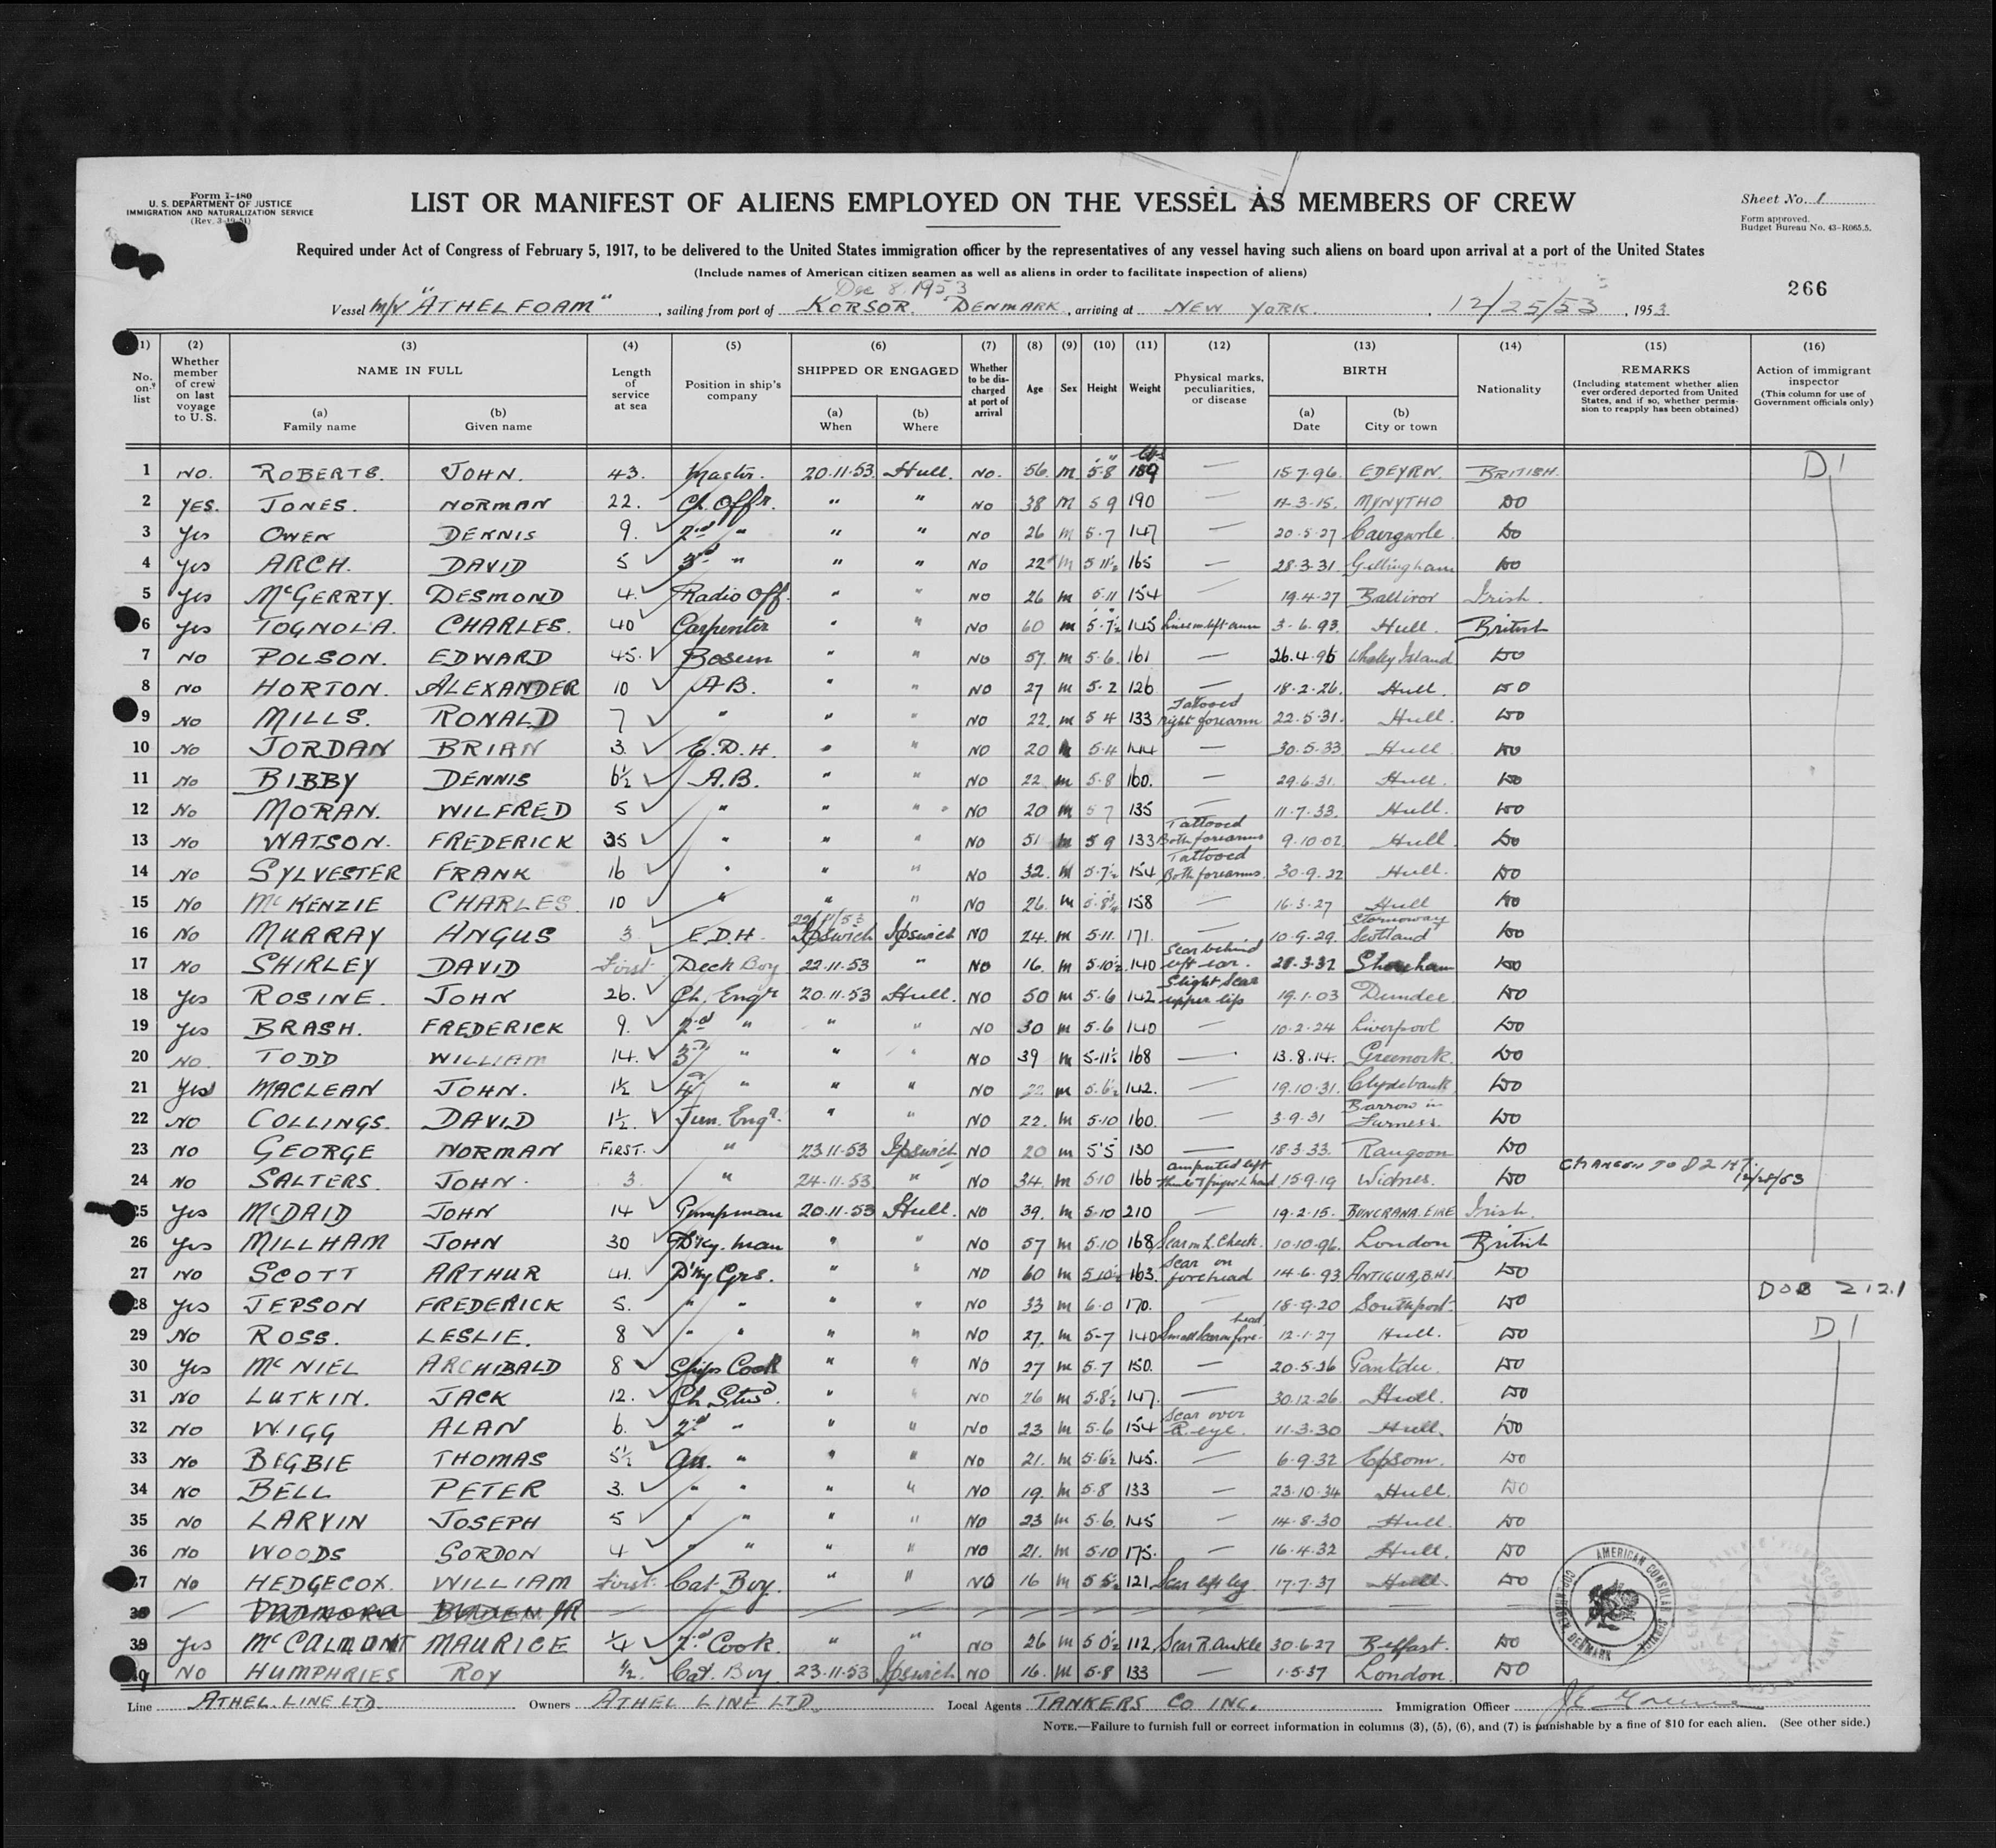 Form I-480
U. S. DEPARTMENT OF JUSTICE
IMMIGRATION AND NATURALIZATION SERVICE
(Rev. 3-19-51)
LIST OR MANIFEST OF ALIENS EMPLOYED ON THE VESSEL AS MEMBERS OF CREW
Sheet No. 1
Form approved.
Budget Bureau No. 43-R065.5.
Required under Act of Congress of February 5, 1917, to be delivered to the United States immigration officer by the representatives of any vessel having such aliens on board upon arrival at a port of the United States
(Include names of American citizen seamen as well as aliens in order to facilitate inspection of aliens)
266
Dec 8, 1953
Vessel M/V "ATHELFOAM", sailing from port of KORSOR. DENMARK, arriving at NEW YORK., 12/25/53, 1953
(1) (2) (3) (4) (5) (6) (7) (8) (9) (10) (11) (12) (13) (14) (15) (16)
No. on list Whether member of crew on last voyage to U. S. NAME IN FULL Length of service at sea Position in ship's company SHIPPED OR ENGAGED Whether to be discharged at port of arrival Age Sex Height Weight Physical marks, peculiarities, or disease BIRTH Nationality REMARKS (Including statement whether alien ever ordered deported from United States, and if so, whether permission to reapply has been obtained) Action of immigrant inspector (This column for use of Government officials only)
(a) Family name (b) Given name (a) When (b) Where (a) Date (b) City or town
1 NO. ROBERTS. JOHN. 43. Master. 20.11.53. Hull. NO. 56. M 5-8 lbs 189 — 15.7.96. EDEYRN. BRITISH. D1
2 YES. JONES. NORMAN 22. Ch. Offr. " " NO 38 M 5 9 190 — 3.15. MYNYTHO DO
3 Yes OWEN DENNIS 9. 2nd " " " NO 26 M 5-7 147 — 20.5.27 DO
4 Yes ARCH. DAVID 5 3rd " " " NO 22 M 5 11½ 165 — 28.3.31. Gillingham DO
5 Yes McGERRTY. DESMOND 4. Radio Off. " " NO 26 M 5-11 154 — 19.4.27 Ballivor Irish.
6 Yes TOGNOLA. CHARLES. 40 Carpenter " " NO 60 M 5-7½ 145 left arm 3-6.93. Hull. British
7 NO POLSON. EDWARD 45. Bosun " " NO 57. M 5-6. 161 — 26.4.96 Whaley Island DO
8 NO HORTON. ALEXANDER 10 AB. " " NO 27 M 5-2 126 — 18.2.26. Hull. DO
9 NO MILLS. RONALD 7 " " " NO 22. M 5 4 133 Tatooed right forearm 22.5.31. Hull. DO
10 NO JORDAN BRIAN 3. E.D.H. " " NO 20 M 5.4 144 — 30.5.33 Hull DO
11 NO BIBBY DENNIS 6½ A.B. " " NO 22 M 5-8 160. — 29.6.31. Hull. DO
12 NO MORAN. WILFRED 5 " " " NO 20 M 5 7 135 — 11.7.33. Hull. DO
13 NO WATSON. FREDERICK 35 " " " NO 51 M 5 9 133 Tattooed Both forearms 9.10.02. Hull. DO
14 NO SYLVESTER FRANK 16 " " " NO 32. M 5-7½ 154 Tattooed Both forearms. 30.9.22 Hull. DO
15 NO McKENZIE CHARLES. 10 " " " NO 26. M 5-8¾ 158 — 16.3.27 Hull DO
16 NO MURRAY ANGUS 3 E.D.H. 22/11/53 Ipswich Ipswich NO 24. M 5.11. 171. — 10.9.29. Stornoway Scotland DO
17 NO SHIRLEY DAVID First Deck Boy 22.11.53 " NO 16. M 5.10½ 140 Scar behind left ear. 28.3.37 Shoreham DO
18 Yes ROSINE. JOHN 26. Ch. Engr 20.11.53 Hull. NO 50 M 5-6 142 Slight Scar upper lip 19.1.03 Dundee. DO
19 Yes BRASH. FREDERICK 9. 2nd " " " NO 30 M 5.6 140 — 10.2.24 Liverpool DO
20 NO. TODD WILLIAM 14. 3rd " " " NO 39 M 5-11½ 168 — 13.8.14. Greenock. DO
21 Yes MACLEAN JOHN. 1½ 4th " " " NO 22 M 5.6½ 142. — 19.10.31. Clydebank DO
22 NO COLLINGS. DAVID 1½. Jun. Engr. " " NO 22. M 5.10 160. — 3.9.31 Barrow in Furness. DO
23 NO GEORGE NORMAN FIRST. " 23.11.53 Ipswich NO 20 M 5'5" 130 — 18.3.33. Rangoon DO
24 NO SALTERS. JOHN. 3. " 24.11.53 " NO 34. M 5.10 166 amputed left hand 15.9.19 Widnes. DO CHANGED TO D2 12/28/53
25 Yes McDAID JOHN 14 Pumpman 20.11.53 Hull. NO 39. M 5.10 210 — 19.2.15. BUNCRANA. EIRE Irish.
26 Yes MILLHAM JOHN 30 D'ky. man " " NO 57 M 5.10 168 Scar on L. Cheek. 10.10.96. London British
27 NO SCOTT ARTHUR 41. D'ky Grs. " " NO 60 M 5.10½ 163. Scar on forehead 14.6.93 ANTIGUA, B.W.I. DO
28 Yes JEPSON FREDERICK 5. " " " " NO 33 M 6.0 170. — 18.9.20 Southport. DO DOB 212.1
29 NO ROSS. LESLIE. 8 " " " " NO 27. M 5-7 140 Small Scar on forehead 12.1.27 Hull. DO D1
30 Yes McNIEL ARCHIBALD 8 Ships Cook " " NO 27 M 5.7 150. — 20.5.26 DO
31 NO LUTKIN. JACK 12. Ch. Stwd. " " NO 26 M 5.8½ 147. — 30.12.26. Hull. DO
32 NO WIGG ALAN 6. 2nd " " " NO 23 M 5.6 154 Scar over R. eye. 11.3.30 Hull. DO
33 NO BEGBIE THOMAS 5½ " " " NO 21. M 5.6½ 145. — 6.9.32 Epsom. DO
34 NO BELL PETER 3. " " " " NO 19. M 5.8 133 — 23.10.34 Hull. DO
35 NO LARVIN JOSEPH 5 " " " " NO 23 M 5.6. 145 — 14.8.30 Hull. DO
36 NO WOODS GORDON 4 " " " " NO 21. M 5.10 175. — 16.4.32 Hull. DO
37 NO HEDGECOX. WILLIAM First. Cat. Boy. " " NO 16 M 5 5½ 121 Scar left leg 17.7.37 Hull DO
38 —
39 Yes McCALMONT MAURICE ¼ 2nd Cook. " " NO 26 M 5 0½ 112 Scar R. Ankle 30.6.27 Belfast. DO
40 NO HUMPHRIES ROY ½. Cat. Boy 23.11.53 Ipswich NO 16. M 5.8 133 — 1.5.37 London. DO
AMERICAN CONSULAR SERVICE
COPENHAGEN, DENMARK
Line ATHEL LINE LTD. Owners ATHEL LINE LTD. Local Agents TANKERS CO INC. Immigration Officer
NOTE.—Failure to furnish full or correct information in columns (3), (5), (6), and (7) is punishable by a fine of $10 for each alien. (See other side.)